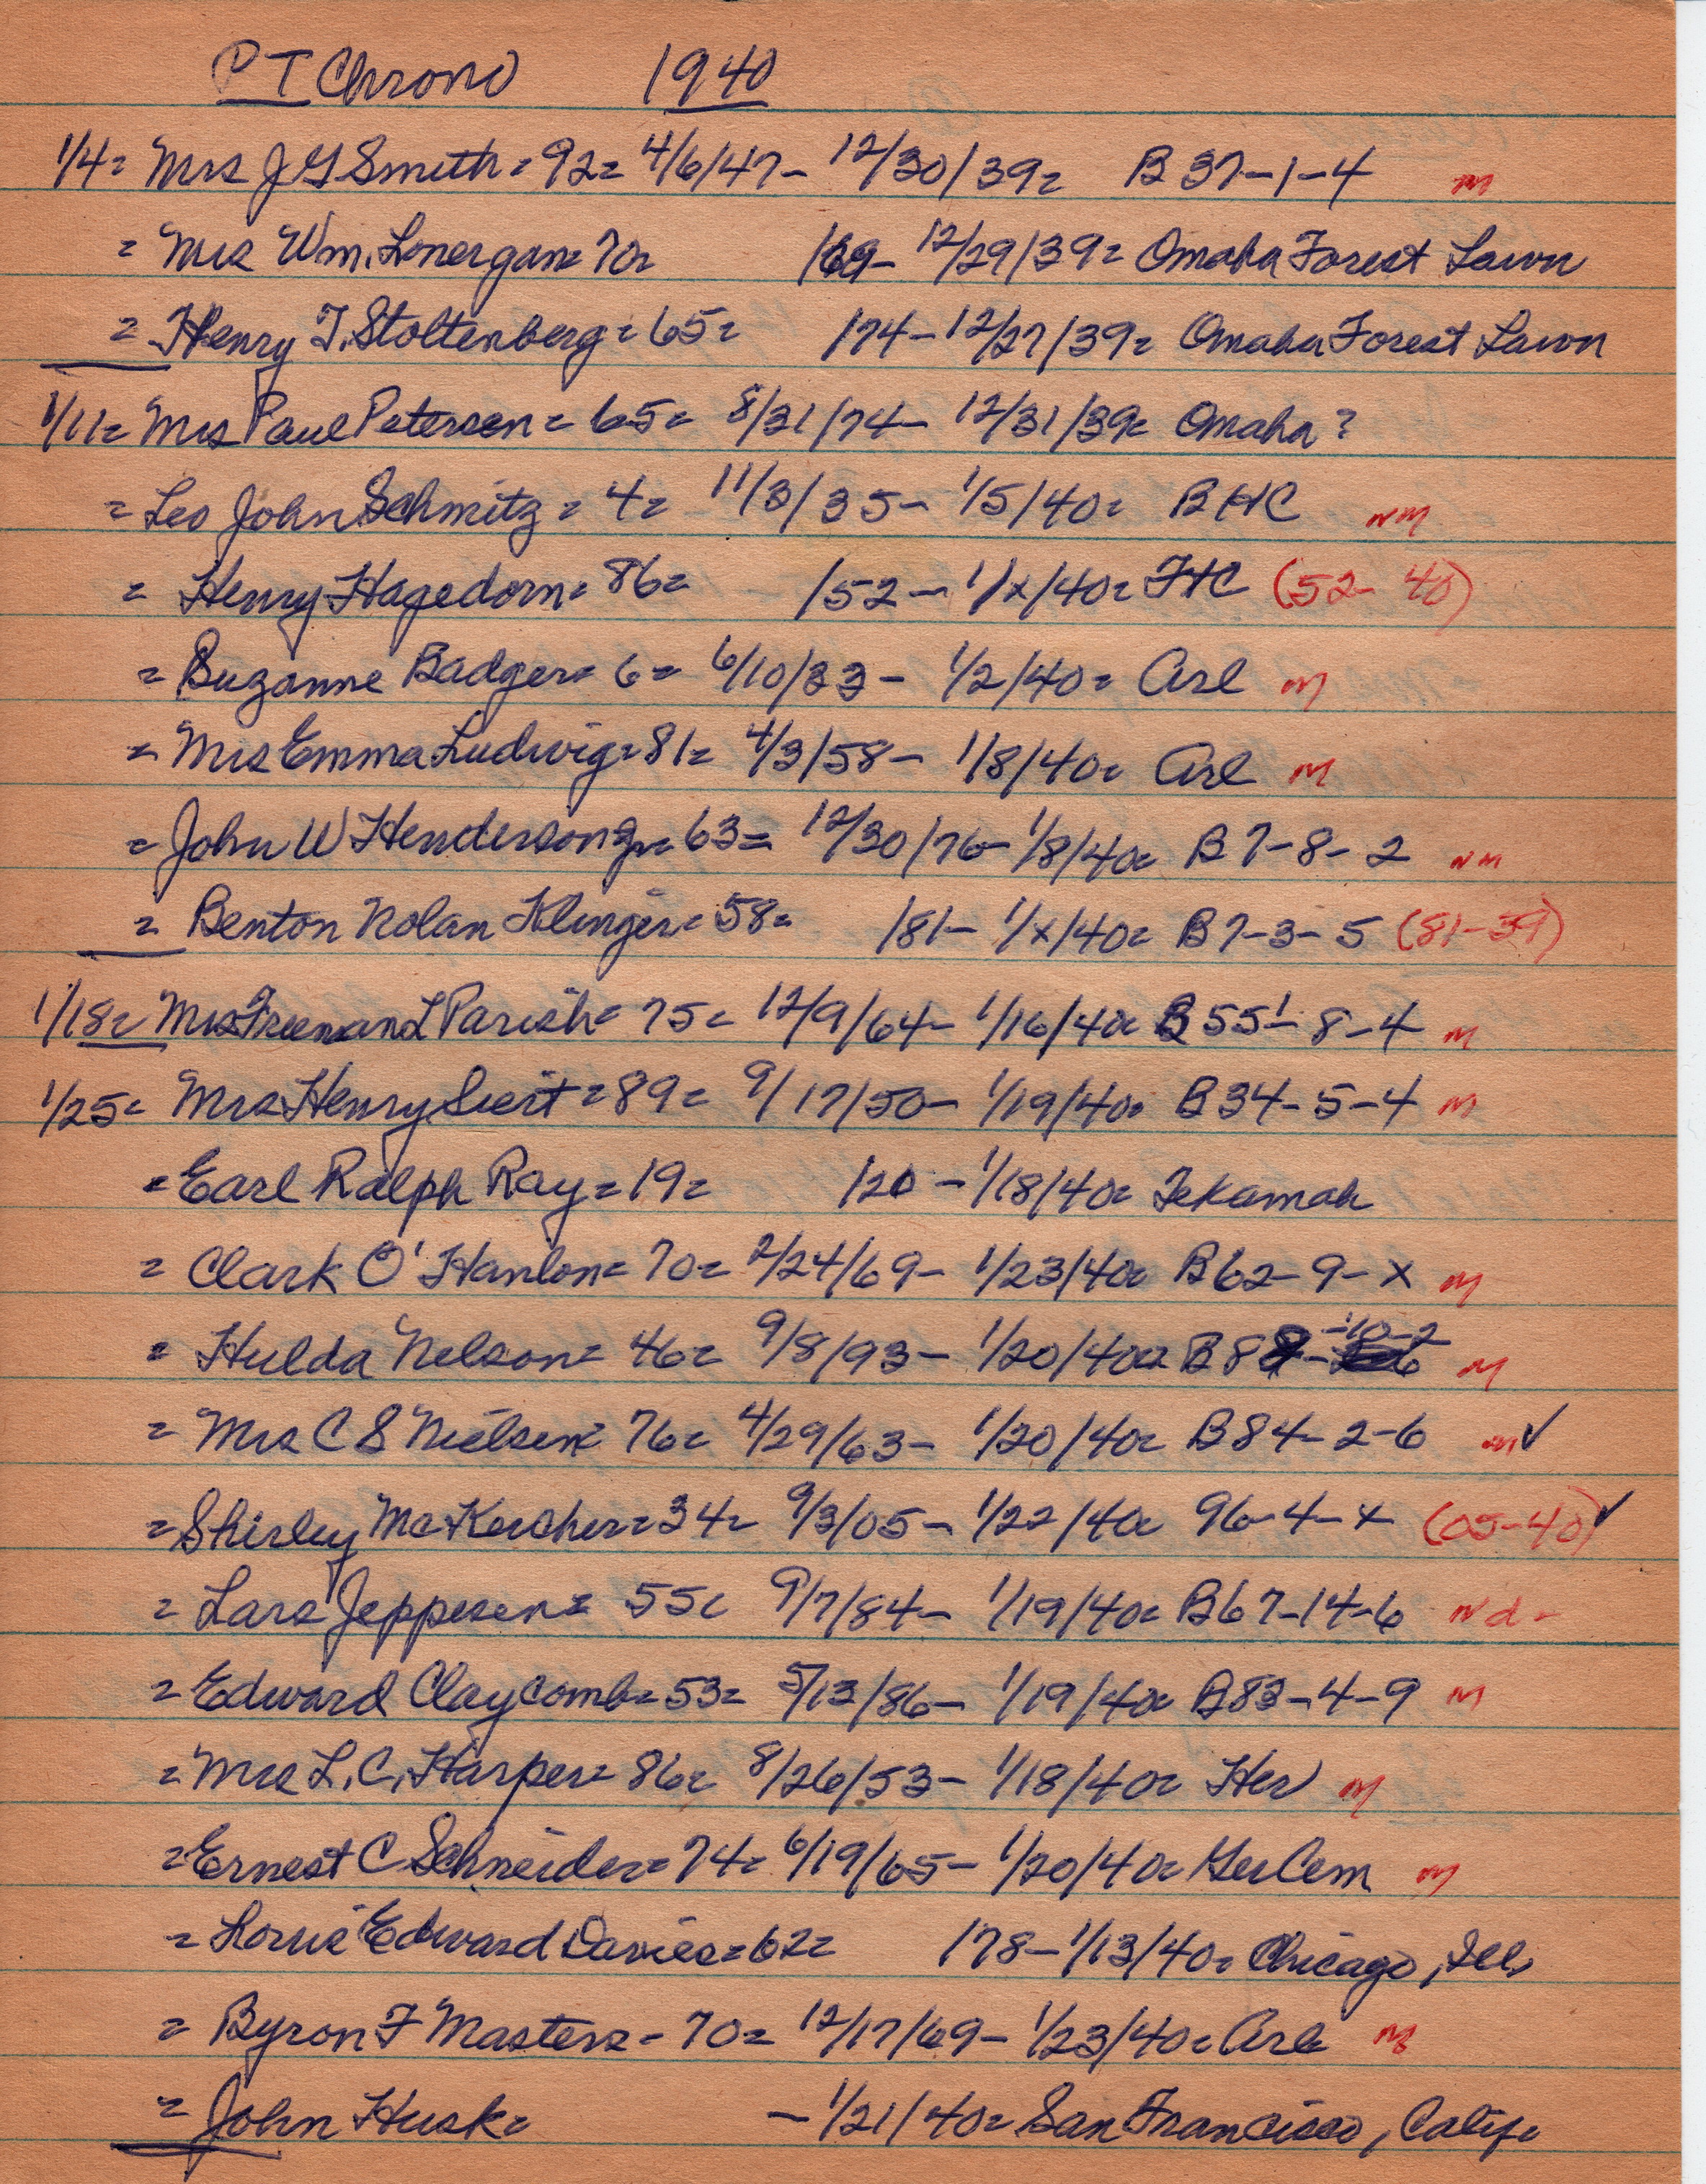 PT Chrono 1940
1/4= Mrs J G Smith= 92= 4/6/47- 12/30/39= B 37-1-4 m
= Mrs Wm. Lonergan= 70= /69- 12/29/39= Omaha Forest Lawn
= Henry T. Stoltenberg= 65= /74- 12/27/39= Omaha Forest Lawn
1/11= Mrs Paul Petersen= 65= 8/31/74- 12/31/39= Omaha?
= Leo John Schmitz= 4= 11/3/35- 1/5/40= BHC nm
= Henry Hagedorn= 86= /52- 1/x/40= FHC (52-40)
= Suzanne Badger= 6= 6/10/33- 1/2/40= Arl m
= Mrs Emma Ludwig= 81= 4/3/58- 1/8/40= Arl m
= John W Henderson Jr= 63= 12/30/76- 1/8/40= B 7-8-2 nm
= Benton Nolan Klinger= 58= /81- 1/x/40= B 7-3-5 (81-39)
1/18= Mrs Freeman L Parish= 75= 12/9/64- 1/16/40= B 551-8-4 m
1/25= Mrs Henry Siert= 89= 9/17/50- 1/19/40= B 34-5-4 m
= Earl Ralph Ray= 19= /20- 1/18/40= Tekamah
= Clark O'Hanlon= 70= 2/24/69- 1/23/40= B 62-9-x m
= Hulda Nelson= 46= 9/8/93- 1/20/40= B 88-10-2 m
= Mrs C S Nielsen= 76= 4/29/63- 1/20/40= B 84-2-6 m✓
= Shirley McKercher= 34= 9/3/05- 1/22/40= 96-4-x (05-40)✓
= Lars Jeppesen= 55= 9/7/84- 1/19/40= B 67-14-6 Nd-
= Edward Claycomb= 53= 5/13/86- 1/19/40= B 83-4-9 m
= Mrs L. C. Harper= 86= 8/26/53- 1/18/40= Her m
= Ernest C Schneider= 74= 6/19/65- 1/20/40= Ger Cem m
= Louie Edward Davies= 62= /78- 1/13/40= Chicago, Ill.
= Byron F Masters- 70= 12/17/69- 1/23/40= Arl m
= John Husk= - 1/21/40= San Francisco, Calif.